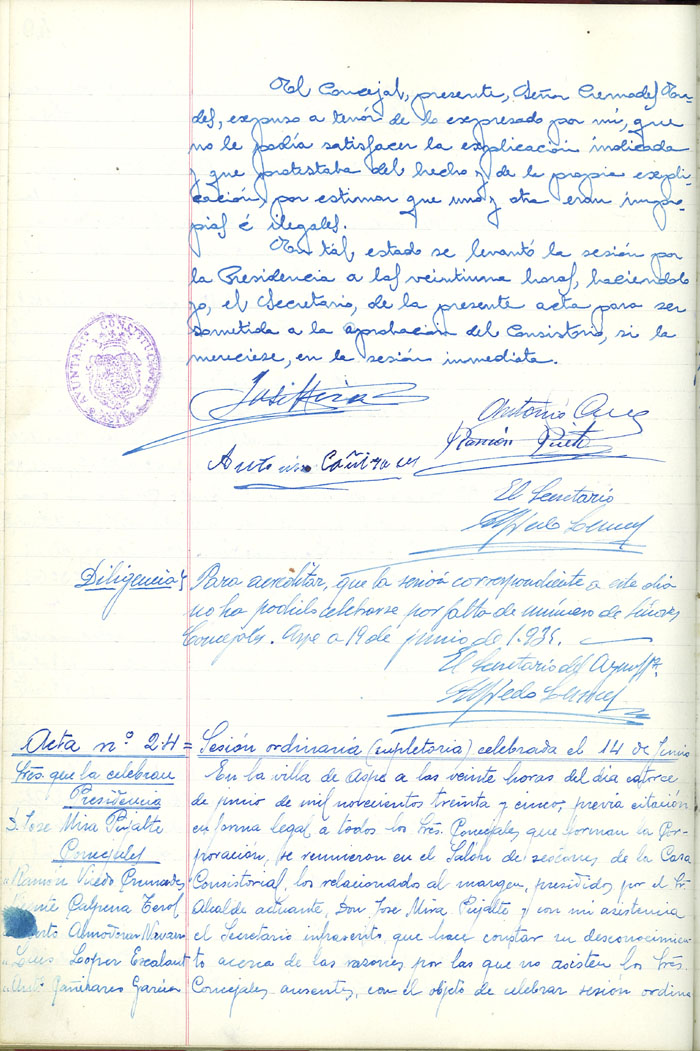 El Concejal, presente, Señor Cremades
des, expuso a tenor de lo expresado por mí, que
no le podía satisfacer la explicación indicada
y que protestaba del hecho y de la propia expli-
cación, por estimar que uno y otra eran impro-
pias é ilegales.
En tal estado se levantó la sesión por
la Presidencia a las veintiuna horas, haciéndolo
yo, el Secretario, de la presente acta para ser
sometida a la aprobación del Consistorio, si la
mereciese, en la sesión inmediata.
AYUNTAMTO CONSTITUCIONAL
José Mira
Antonio
Ramón
Antonio Cañizares
El Secretario
Alfredo
Diligencia
Para acreditar, que la sesión correspondiente a este día
no ha podido celebrarse por falta de número de Señores
Concejales. Aspe a 19 de junio de 1.935.
El Secretario del Ayunt.
Alfredo
Acta nº 24 = Sesión ordinaria (supletoria) celebrada el 14 de Junio
Sres. que la celebran
Presidencia
D. Jose Mira Pujalte
Concejales
" Ramón Cremades
Vicente Calpena Terol
Almodovar
" Luis Lopez Escalant
" Antº Cañizares Garcia
En la villa de Aspe a las veinte horas del día catorce
de junio de mil novecientos treinta y cinco, previa citación
en forma legal a todos los Sres. Concejales que forman la Cor-
poración, se reunieron en el Salón de sesiones de la Casa
Consistorial, los relacionados al margen, presididos por el Sr.
Alcalde actuante, Don Jose Mira Pujalte y con mi asistencia
el Secretario infrascrito, que hace constar su desconocimien-
to acerca de las razones por las que no asisten los Sres.
Concejales ausentes, con el objeto de celebrar sesión ordina